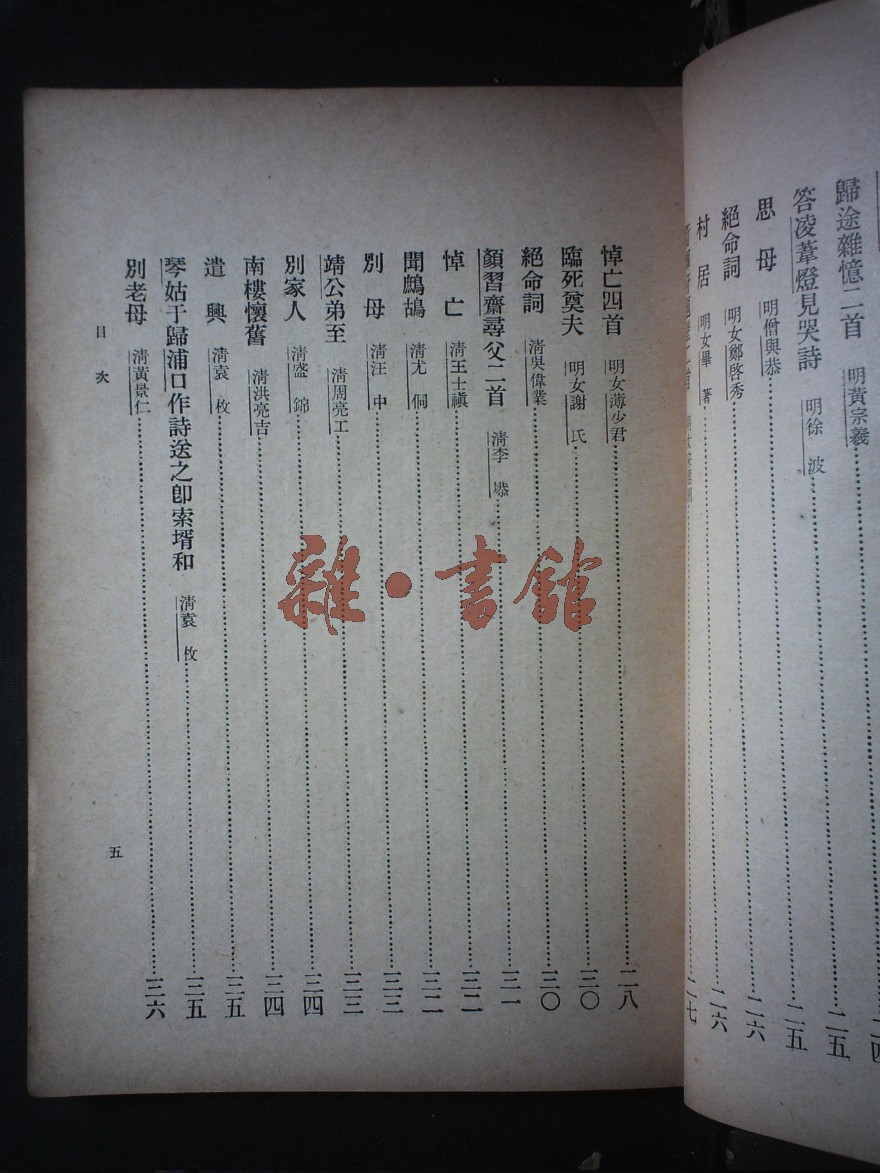 歸途雜憶二首 明黃宗羲 二五
答凌葦燈見哭詩 明徐波 二五
思母 明僧與恭 二六
絕命詞 明女鄭啓秀 二六
村居 明女畢著 二七
悼亡四首 明女薄少君 二八
臨死奠夫 明女謝氏 三〇
絕命詞 淸吳偉業 三〇
顏習齋尋父二首 淸李塨 三一
悼亡 淸王士禛 三二
聞鷓鴣 淸尤侗 三二
別母 淸汪中 三三
靖公弟至 淸周亮工 三三
別家人 淸盛錦 三四
南樓懷舊 淸洪亮吉 三四
遣興 淸袁枚 三五
琴姑于歸浦口作詩送之卽索壻和 淸袁枚 三五
別老母 淸黃景仁 三六
目次
五
雜·書館